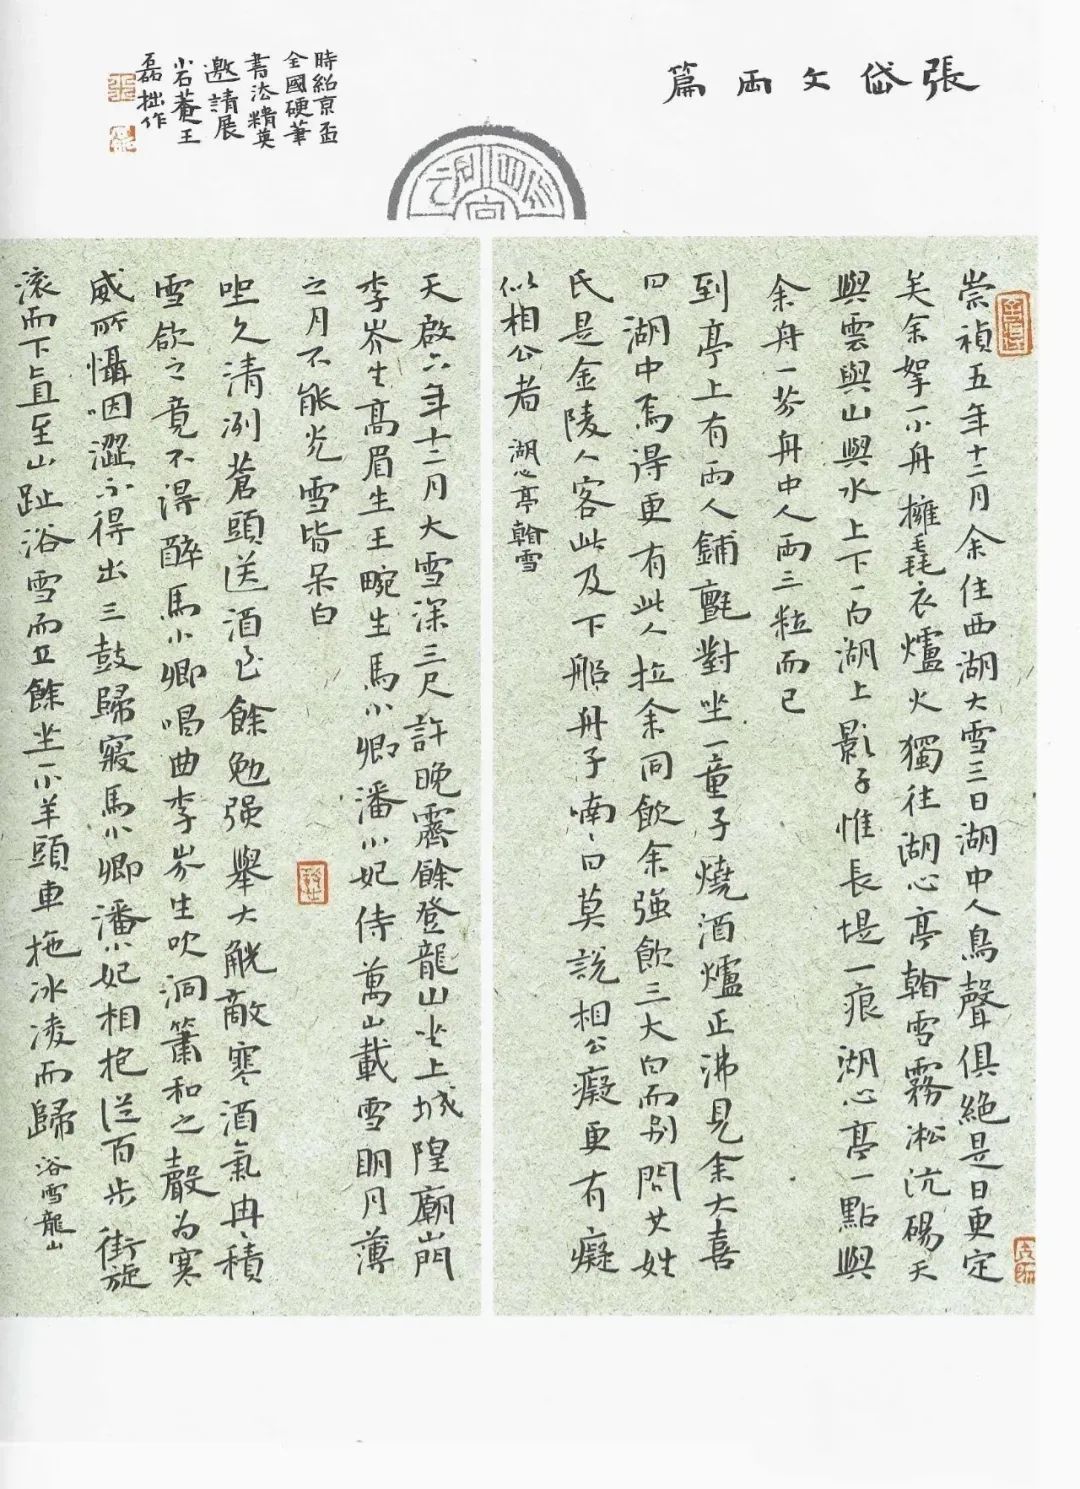 張岱文两篇
崇禎五年十二月余住西湖大雪三日湖中人鳥聲俱絶是日更定
矣余拏一小舟擁毳衣爐火獨往湖心亭看雪霧凇沆碭天
與雲與山與水上下一白湖上影子惟長堤一痕湖心亭一點與
余舟一芥舟中人两三粒而已
到亭上有两人鋪氈對坐一童子燒酒爐正沸見余大喜
曰湖中焉得更有此人拉余同飲余強飲三大白而别問其姓
氏是金陵人客此及下船舟子喃〻曰莫說相公癡更有癡
似相公者 湖心亭看雪
天啟六年十二月大雪深三尺許晚霽餘登龍山坐上城隍廟山門
李岕生高眉生王畹生馬小卿潘小妃侍萬山載雪明月薄
之月不能光雪皆呆白
坐久清冽蒼頭送酒至餘勉强舉大觥敵寒酒氣冉〻積
雪欲之竟不得醉馬小卿唱曲李岕生吹洞簫和之聲为寒
威所懾咽澀不得出三鼓歸寢馬小卿潘小妃相抱從百步街旋
滚而下直至山趾浴雪而立餘坐一小羊頭車拖冰凌而歸 浴雪龍山
時紹京盃
全國硬筆
書法精英
邀請展
小石菴王
磊拙作